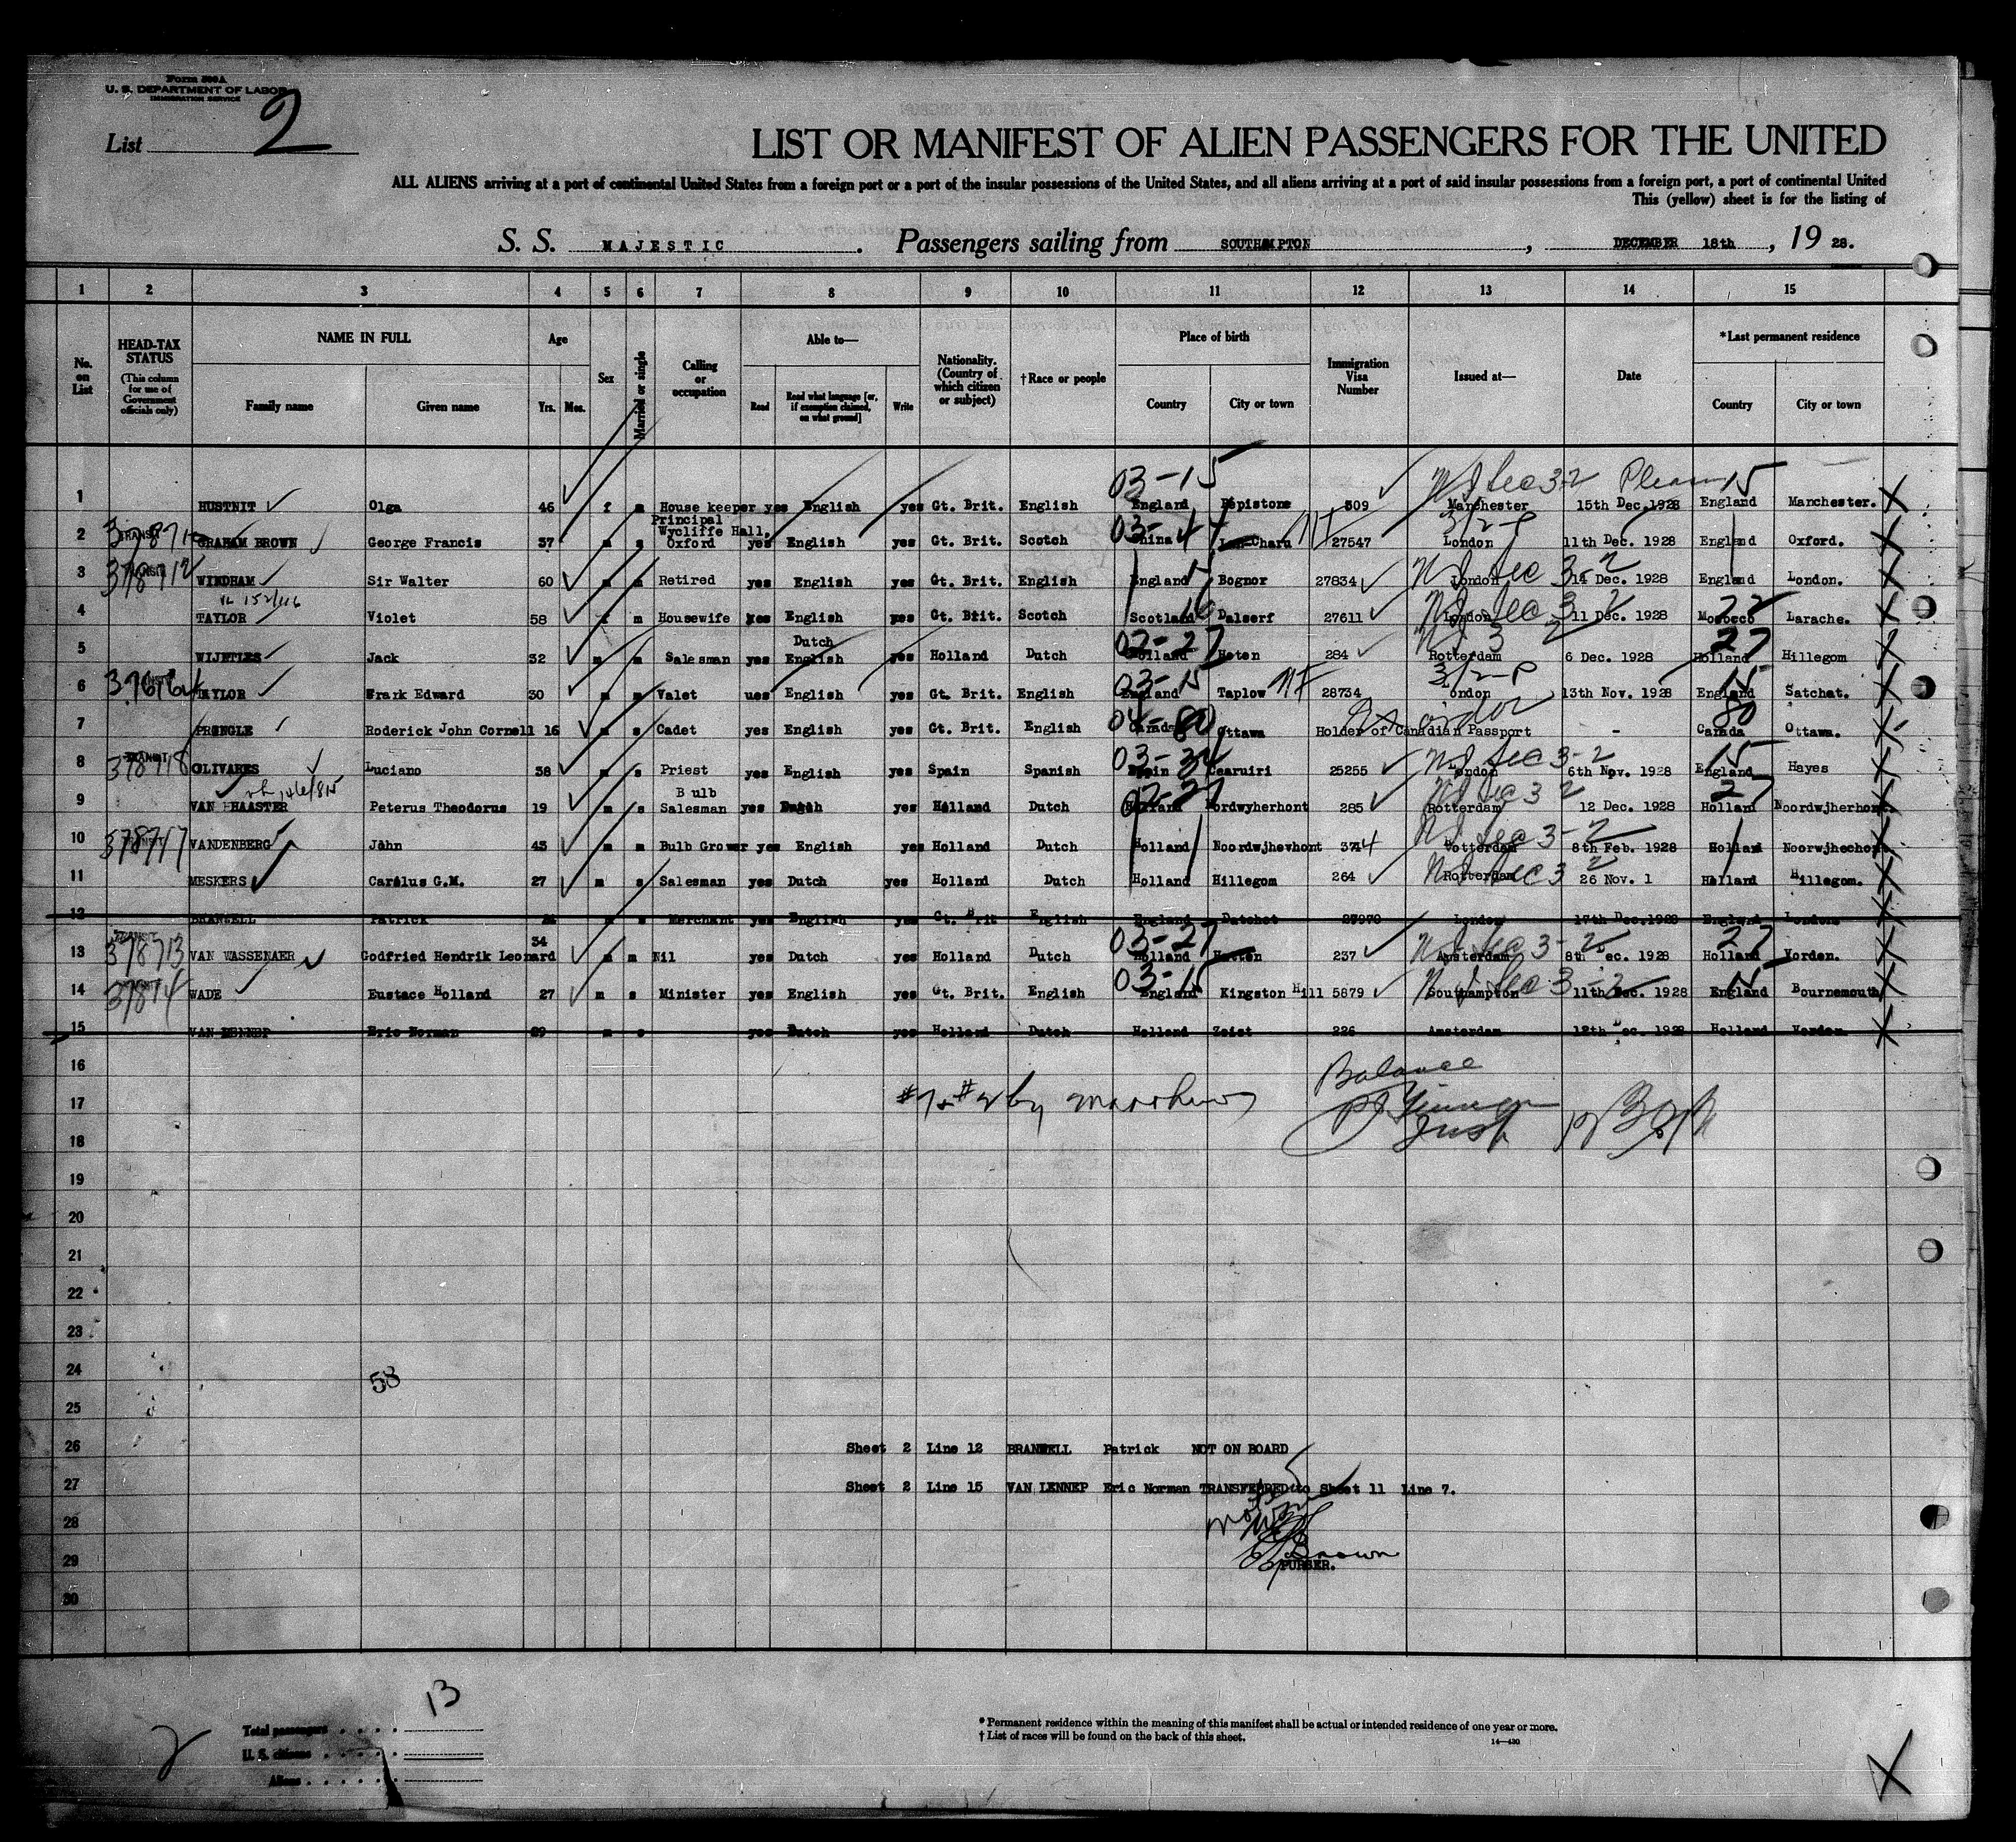 Form 500A
U. S. DEPARTMENT OF LABOR
IMMIGRATION SERVICE
List 2
LIST OR MANIFEST OF ALIEN PASSENGERS FOR THE UNITED
ALL ALIENS arriving at a port of continental United States from a foreign port or a port of the insular possessions of the United States, and all aliens arriving at a port of said insular possessions from a foreign port, a port of continental United
This (yellow) sheet is for the listing of
S. S. MAJESTIC. Passengers sailing from SOUTHAMPTON, DECEMBER 18th, 1928.
1 2 3 4 5 6 7 8 9 10 11 12 13 14 15
No. on List
HEAD-TAX STATUS (This column for use of Government officials only)
NAME IN FULL Family name Given name
Age Yrs. Mos.
Sex
Married or single
Calling or occupation
Able to— Read Read what language [or, if exemption claimed, on what ground] Write
Nationality. (Country of which citizen or subject)
† Race or people
Place of birth Country City or town
Immigration Visa Number
Issued at—
Date
*Last permanent residence Country City or town
03-15 15
1 HUSTNIT Olga 46 f m House keeper yes English yes Gt. Brit. English England 509 Manchester 15th Dec. 1928 England Manchester.
2 TRANSIT GRAHAM BROWN George Francis 37 m s Principal Wycliffe Hall, Oxford yes English yes Gt. Brit. Scotch China 27547 London 11th Dec. 1928 England Oxford.
3 378712 WINDHAM Sir Walter 60 m m Retired yes English yes Gt. Brit. English England Bognor 27834 London 14 Dec. 1928 England London.
4 TAYLOR Violet 58 f m Housewife yes English yes Gt. Brit. Scotch Scotland Dalserf 27611 London 11 Dec. 1928 Morocco Larache.
5 Jack 32 m m Salesman yes Dutch English yes Holland Dutch Holland Heten 284 Rotterdam 6 Dec. 1928 Holland Hillegom
6 TAYLOR Frark Edward 30 m m Valet ues English yes Gt. Brit. English England Taplow 28734 London 13th Nov. 1928 England Satchat.
7 PRINGLE Roderick John Cornell 16 m s Cadet yes English yes Gt. Brit. English Canada Ottawa Holder of Canadian Passport - Canada Ottawa.
8 TRANSIT 378718 OLIVARES Luciano 38 m s Priest yes English yes Spain Spanish Spain Cearuiri 25255 London 6th Nov. 1928 England Hayes
9 VAN HAASTER Peterus Theodorus 19 m s Bulb Salesman yes Dutch yes Holland Dutch Holland Nordwyherhont 285 Rotterdam 12 Dec. 1928 Holland Noordwjherhont
10 378717 VANDENBERG John 43 m m Bulb Grower yes English yes Holland Dutch Holland Noordwjhevhont 3744 Rotterdam 8th Feb. 1928 Holland Noorwjhechont
11 MESKERS Carolus G.M. 27 m s Salesman yes Dutch yes Holland Dutch Holland Hillegom 264 Rotterdam 26 Nov. 1 Holland Hillegom.
12 BRANWELL Patrick m s Merchant yes English yes Gt. Brit English England Datchet 27970 London 17th Dec. 1928 England London
13 378713 VAN WASSENAER Godfried Hendrik Leonard 34 m m Nil yes Dutch yes Holland Dutch Holland Hatten 237 Amsterdam 8th Dec. 1928 Holland Vorden.
14 WADE Eustace Holland 27 m s Minister yes English yes Gt. Brit. English England Kingston Hill 5879 Southampton 11th Dec. 1928 England Bournemouth
15 VAN LENNEP Eric Norman 29 m s yes Dutch yes Holland Dutch Holland Zeist 226 Amsterdam 12th Dec. 1928 Holland Vorden.
16 Balance
17
18
19
20
21
22
23
24
58
25
26 Sheet 2 Line 12 BRANWELL Patrick NOT ON BOARD
27 Sheet 2 Line 15 VAN LENNEP Eric Norman TRANSFERRED to Sheet 11 Line 7.
28
29 Brown
PURSER.
30
13
2
Total passengers
U. S. citizens
Aliens
* Permanent residence within the meaning of this manifest shall be actual or intended residence of one year or more.
† List of races will be found on the back of this sheet.
14—430